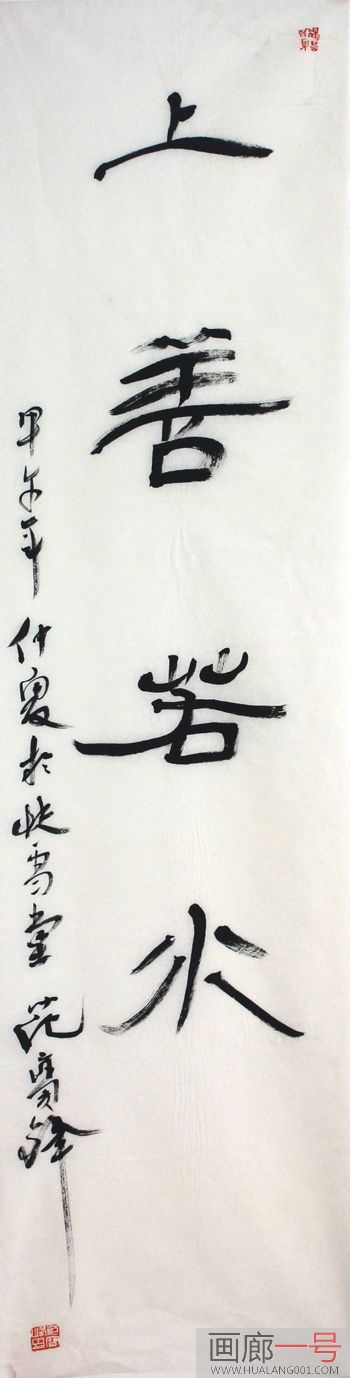 上善若水
甲午年仲夏於快雪堂范
画廊一号
WWW.HUALANG001.COM